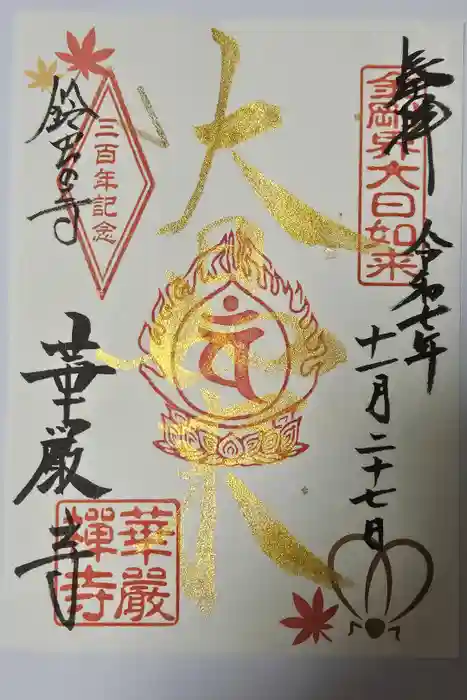 奉拝
令和七年
十一月二十七日
金剛界大日如来
大日如来
वं
三百年記念
鈴虫の寺
華厳寺
華嚴
禪寺